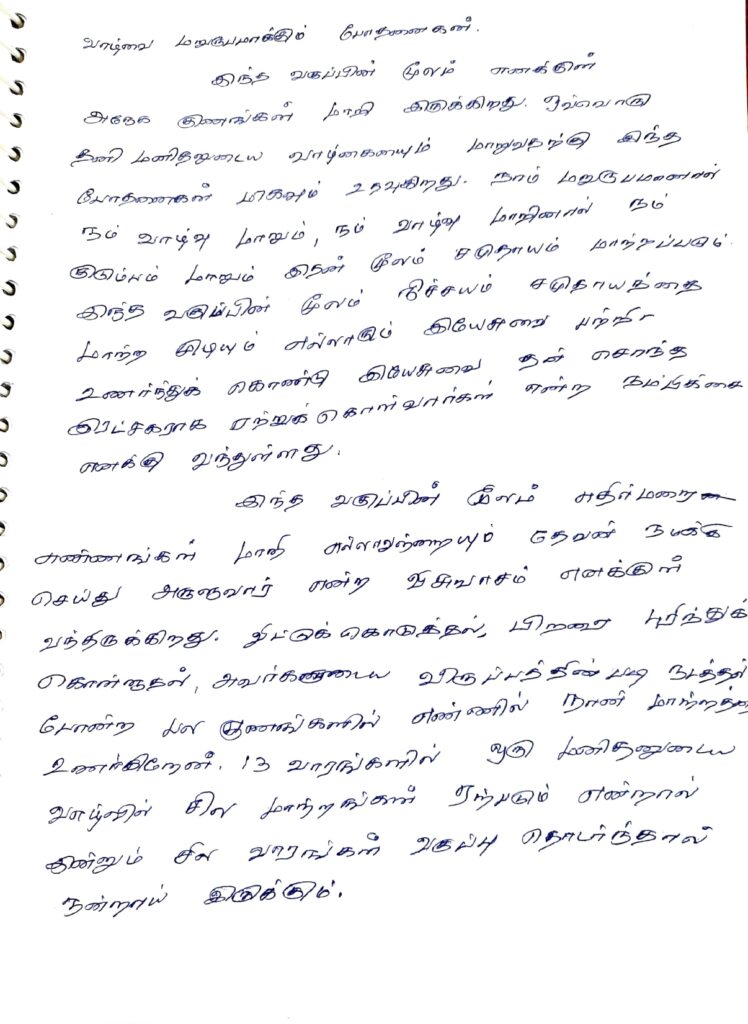 வாழ்வை மறுரூபமாக்கும் போதனைகள்.
இந்த வகுப்பின் மூலம் எனக்குள்
அநேக குணங்கள் மாறி இருக்கிறது. ஒவ்வொரு
தனி மனிதனுடைய வாழ்கையையும் மாறுவதற்கு இந்த
போதனைகள் மிகவும் உதவுகிறது. நாம் மறுரூபமானால்
நம் வாழ்வு மாறும், நம் வாழ்வு மாறினால் நம்
குடும்பம் மாறும் இதன் மூலம் சமுதாயம் மாற்றப்படும்.
இந்த வகுப்பின் மூலம் நிச்சயம் சமுதாயத்தை
மாற்ற முடியும் எல்லாரும் இயேசுவை பற்றி
உணர்ந்துக் கொண்டு இயேசுவை தன் சொந்த
இரட்சகராக ஏற்றுக் கொள்வார்கள் என்ற நம்பிக்கை
எனக்கு வந்துள்ளது.
இந்த வகுப்பின் மூலம் எதிர்மறை
எண்ணங்கள் மாறி எல்லாவற்றையும் தேவன் நமக்கு
செய்து அருளுவார் என்ற விசுவாசம் எனக்குள்
வந்திருக்கிறது. விட்டுக் கொடுத்தல், பிறரை புரிந்துக்
கொள்ளுதல், அவர்களுடைய விருப்பத்தின்படி நடத்தல்
போன்ற பல குணங்களில் என்னில் நான் மாற்றத்தை
உணர்கிறேன். 13 வாரங்களில் ஒரு மனிதனுடைய
வாழ்வில் சில மாற்றங்கள் ஏற்படும் என்றால்
இன்னும் சில வாரங்கள் வகுப்பு தொடர்ந்தால்
நன்றாய் இருக்கும்.